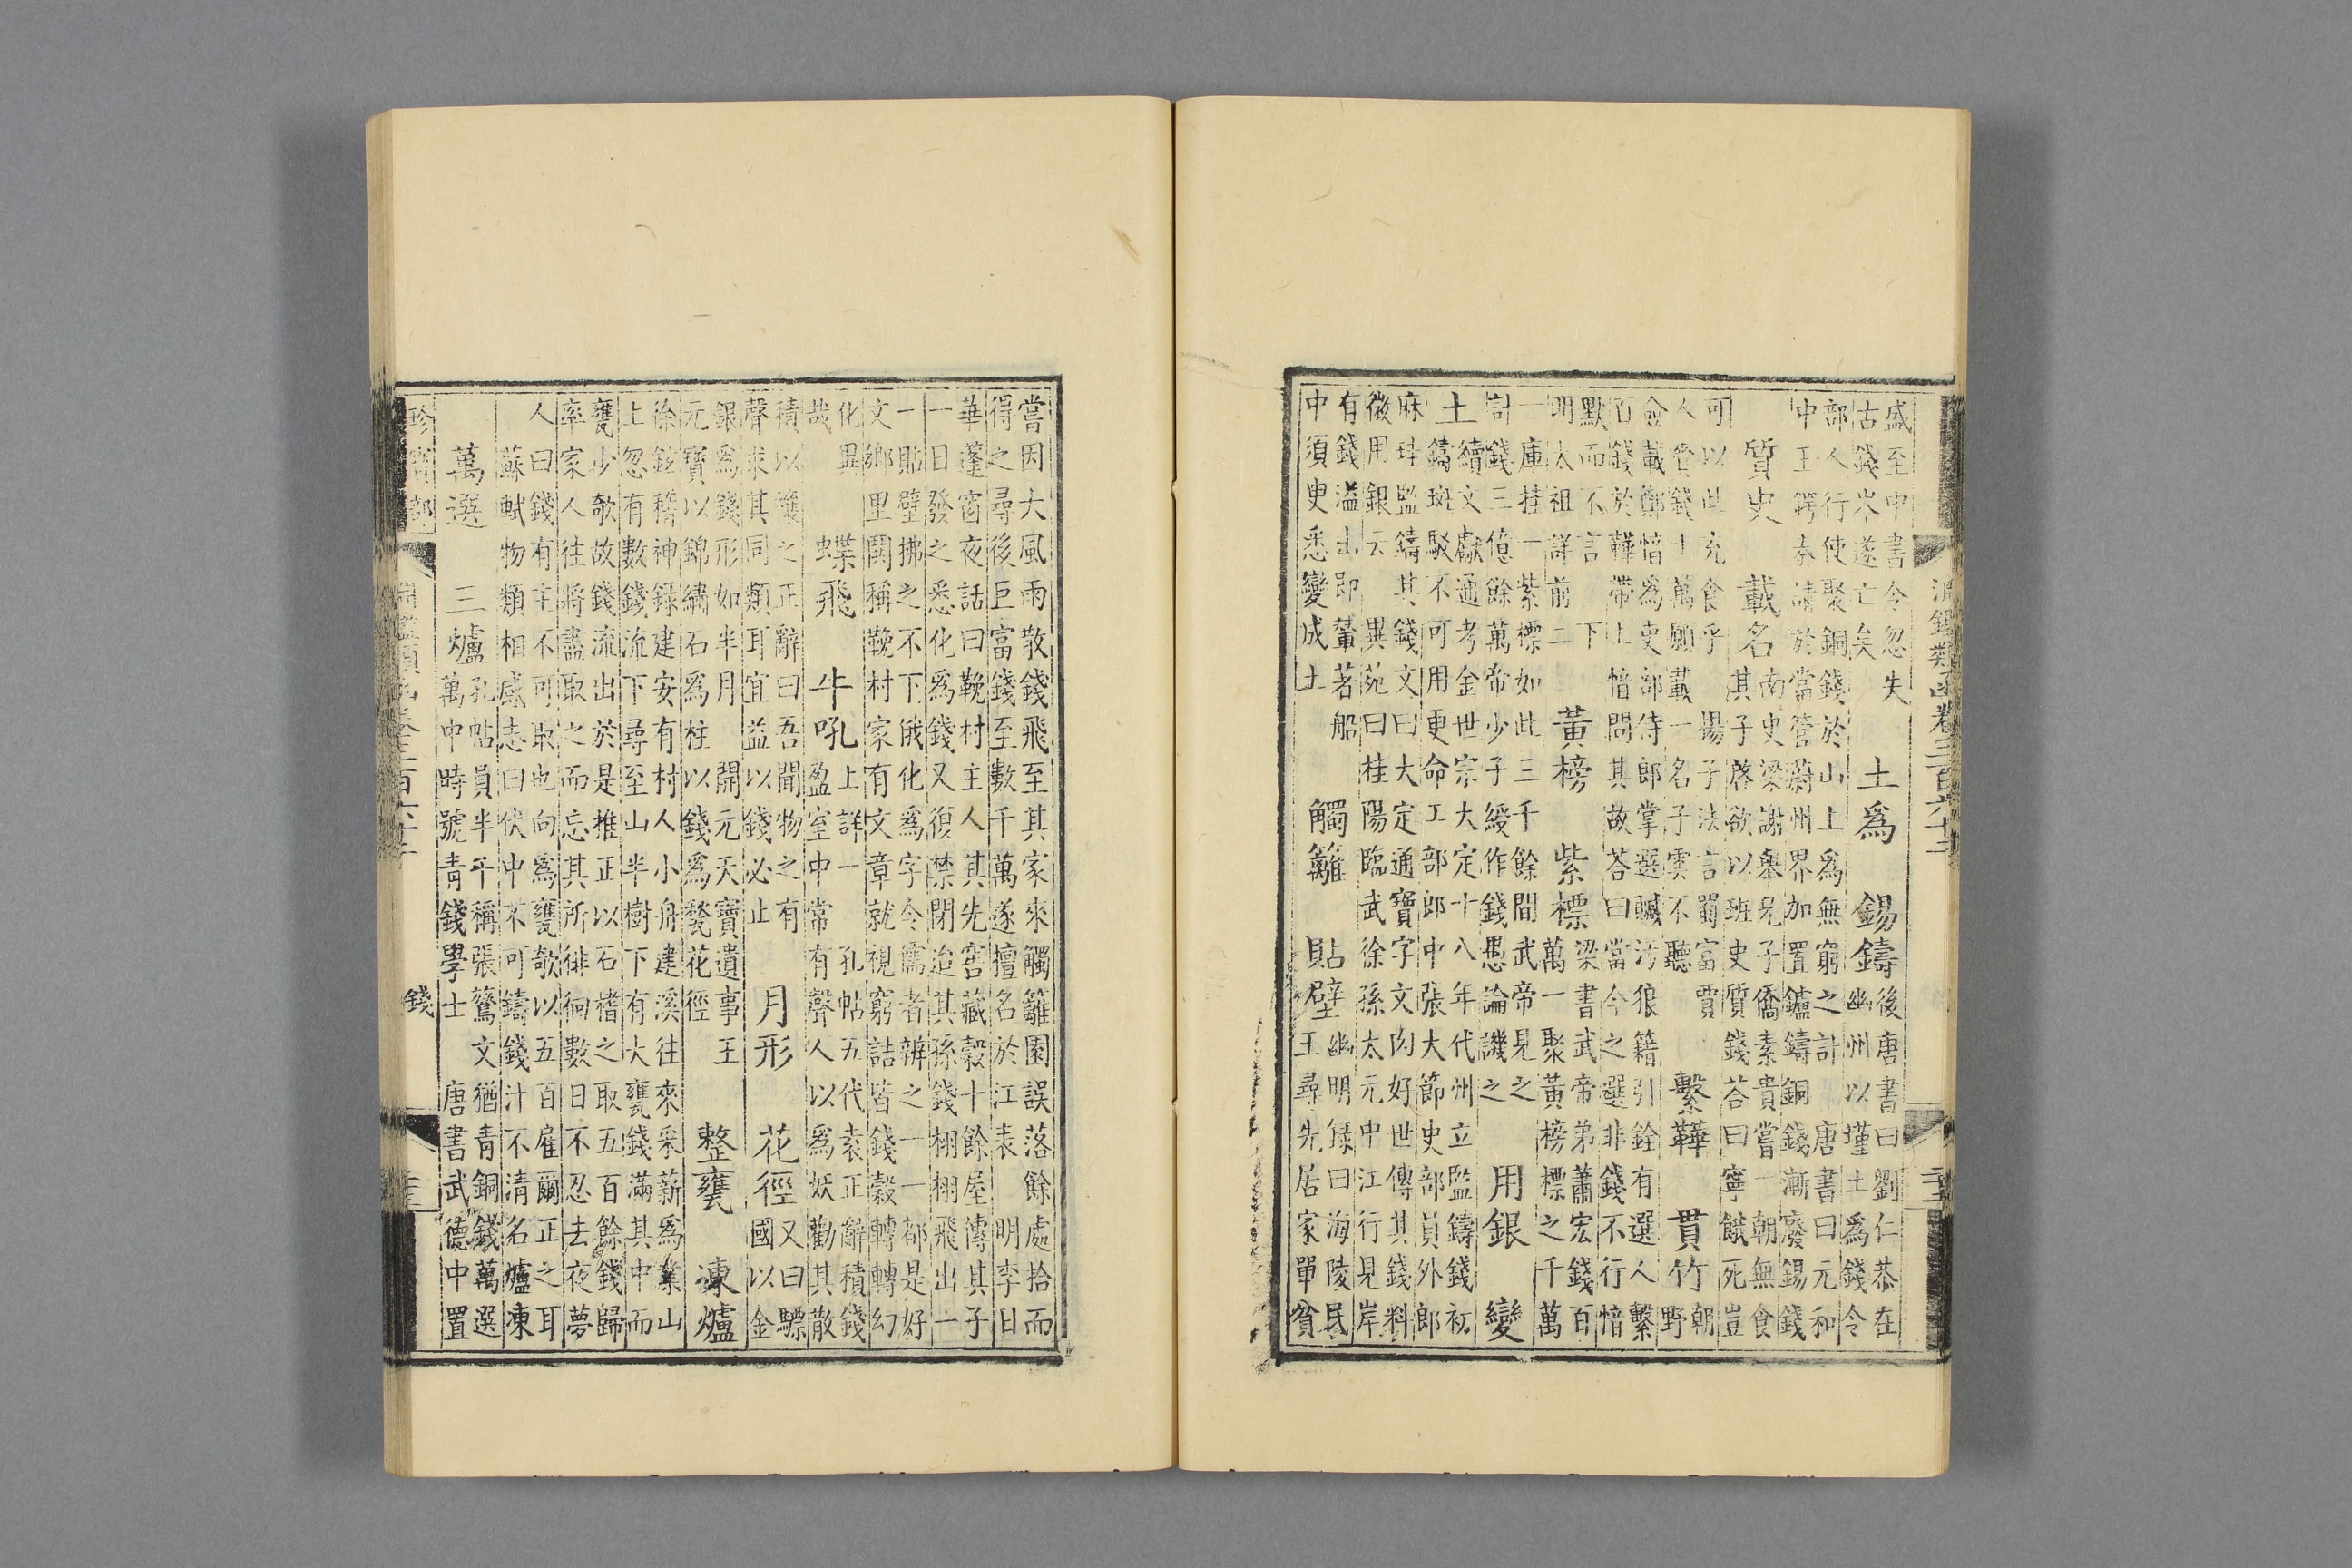 淵鑑類函卷三百六十三
盛至中書令忽失
古錢岑遂亡矣
土爲　錫鑄
後唐書曰劉仁恭在
幽州以墐土爲錢令
部人行使聚銅錢於山上爲無窮之計　唐書曰元和
中王鍔奏請於當管蔚州界加置鑪鑄銅錢漸廢錫錢
質史　載名
南史梁謝舉兄子僑素貴嘗一朝無食
其子啓欲以班史質錢荅曰寧餓死豈
可以此充食乎　揚子法言蜀富賈
人賫錢十萬願載一名子雲不聽
繫鞾　貫竹
朝
野
僉載鄭愔爲吏部侍郎掌選贓汚狼籍引銓有選人繫
百錢於鞾帶上愔問其故荅曰當今之選非錢不行愔
默而不言　下
明太祖詳前二
黃榜　紫標
梁書武帝弟蕭宏錢百
萬一聚黃榜標之千萬
一庫挂一紫標如此三千餘間武帝見之
計錢三億餘萬帝少子綬作錢愚論譏之
用銀　變
土
續文獻通考金世宗大定十八年代州立監鑄錢初
鑄斑駁不可用更命工部郎中張大節史部員外郎
麻珪監鑄其錢文曰大定通寶字文肉好世傳其錢料
微用銀云　異苑曰桂陽臨武徐孫太元中江行見岸
有錢溢出即輦著船
中須臾悉變成土
觸籬　貼壁
幽明錄曰海陵民
王尋先居家單貧
嘗因大風雨散錢飛至其家來觸籬園誤落餘處拾而
得之尋後巨富錢至數千萬遂擅名於江表　明李日
華蓬窗夜話曰鞔村主人其先窖藏穀十餘屋傳其子
一日發之悉化爲錢又復禁閉迨其孫錢栩栩飛出一
一貼壁拂之不下俄化爲字令儒者辦之一一都是好
文鄉里鬨稱鞔村家有文章就視窮詰皆錢穀轉轉幻
化異
哉
蝶飛　牛吼
上詳一　孔帖五代袁正辭積錢
盈室中常有聲人以爲妖勸其散
積以禳之正辭曰吾聞物之有
聲求其同類耳宜益以錢必止
月形　花徑
又曰驃
國以金
銀爲錢形如半月　開元天寶遺事王
元寶以錦繡石爲柱以錢爲甃花徑
整甕　凍爐
徐鉉稽神錄建安有村人小舟建溪往來采薪爲業山
上忽有數錢流下尋至山半樹下有大甕錢滿其中而
甕少欹故錢流出於是推正以石楮之取五百餘錢歸
率家人往將盡取之而忘其所徘徊數日不忍去夜夢
人曰錢有主不可取也向爲甕欹以五百雇爾正之耳
蘇軾物類相感志曰伏中不可鑄錢汁不清名爐凍
萬選　三爐
孔帖員半千稱張鷟文猶青銅錢萬選
萬中時號青錢學士　唐書武德中置
珍寶部　錢